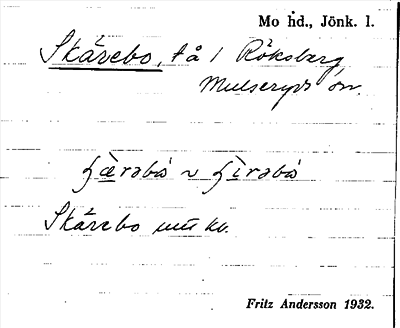 Mo hd., Jönk. l.
Skärebo, tå / Röksberg,
Mulseryds sn.
ʃæ̀rəbo ~ ʃìrəbo
Skärebo
Fritz Andersson 1932.